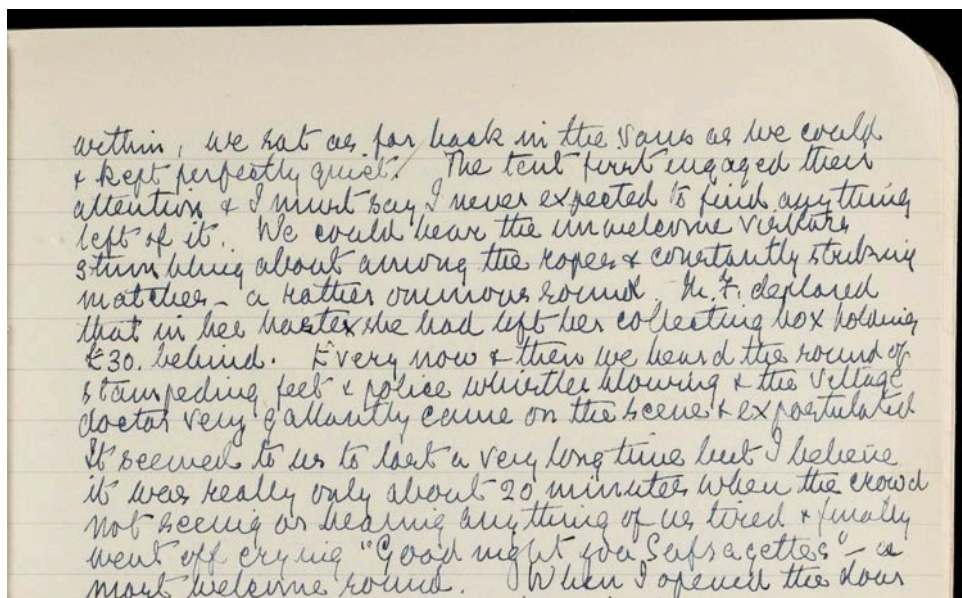 within, we sat as far back in the vans as we could
& kept perfectly quiet. The tent first engaged their
attention & I must say I never expected to find anything
left of it. We could hear the unwelcome visitors
stumbling about among the ropes & constantly striking
matches – a rather ominous sound. F. deplored
that in her haste she had left her collecting box holding
£30. behind. Every now & then we heard the sound of
stampeding feet & police whistles blowing & the village
doctor very gallantly came on the scene & expostulated
It seemed to us to last a very long time but I believe
it was really only about 20 minutes when the crowd
not seeing or hearing anything of us tired & finally
went off crying "Good night you Sufragettes" – a
most welcome sound. When I opened the door